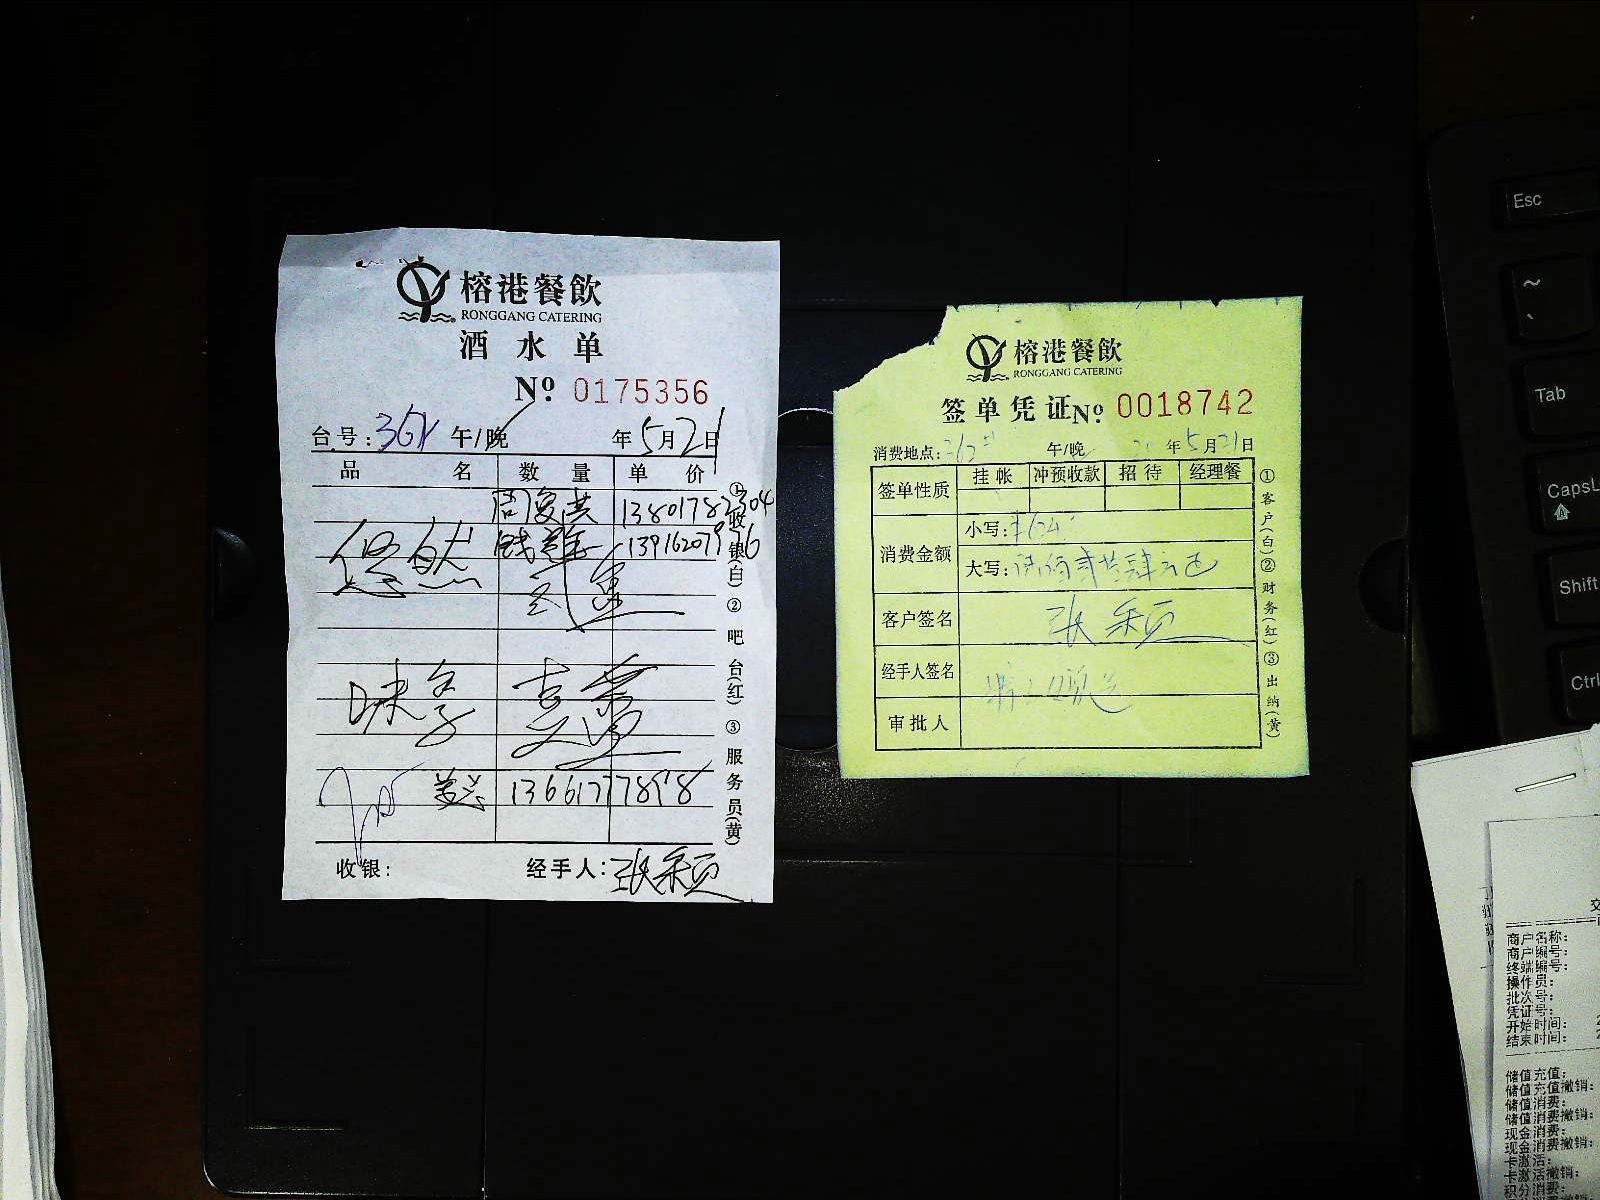 榕港餐飲
RONGGANG CATERING
酒水单
№ 0175356
台号: 午/晚 年5月21日
品名 数量 单价
周复洪 13801782304
悠然 13916207976
味多
13661777898
收银: 经手人:张采页
①收银(白)②吧台(红)③服务员(黄)
榕港餐飲
RONGGANG CATERING
签单凭证№ 0018742
消费地点: 午/晚 年5月21日
签单性质 挂帐 冲预收款 招待 经理餐
消费金额 小写:¥624
大写:陆佰贰拾肆元正
客户签名 张采页
经手人签名
审批人
①客户(白)②财务(红)③出纳(黄)
Esc
~
Tab
CapsL
Shift
Ctrl
商户名称:
商户编号:
终端编号:
操作员:
批次号:
凭证号:
开始时间:
结束时间:
储值充值:
储值充值撤销:
储值消费:
储值消费撤销:
现金消费:
现金消费撤销:
卡激活:
卡激活撤销:
积分消费: